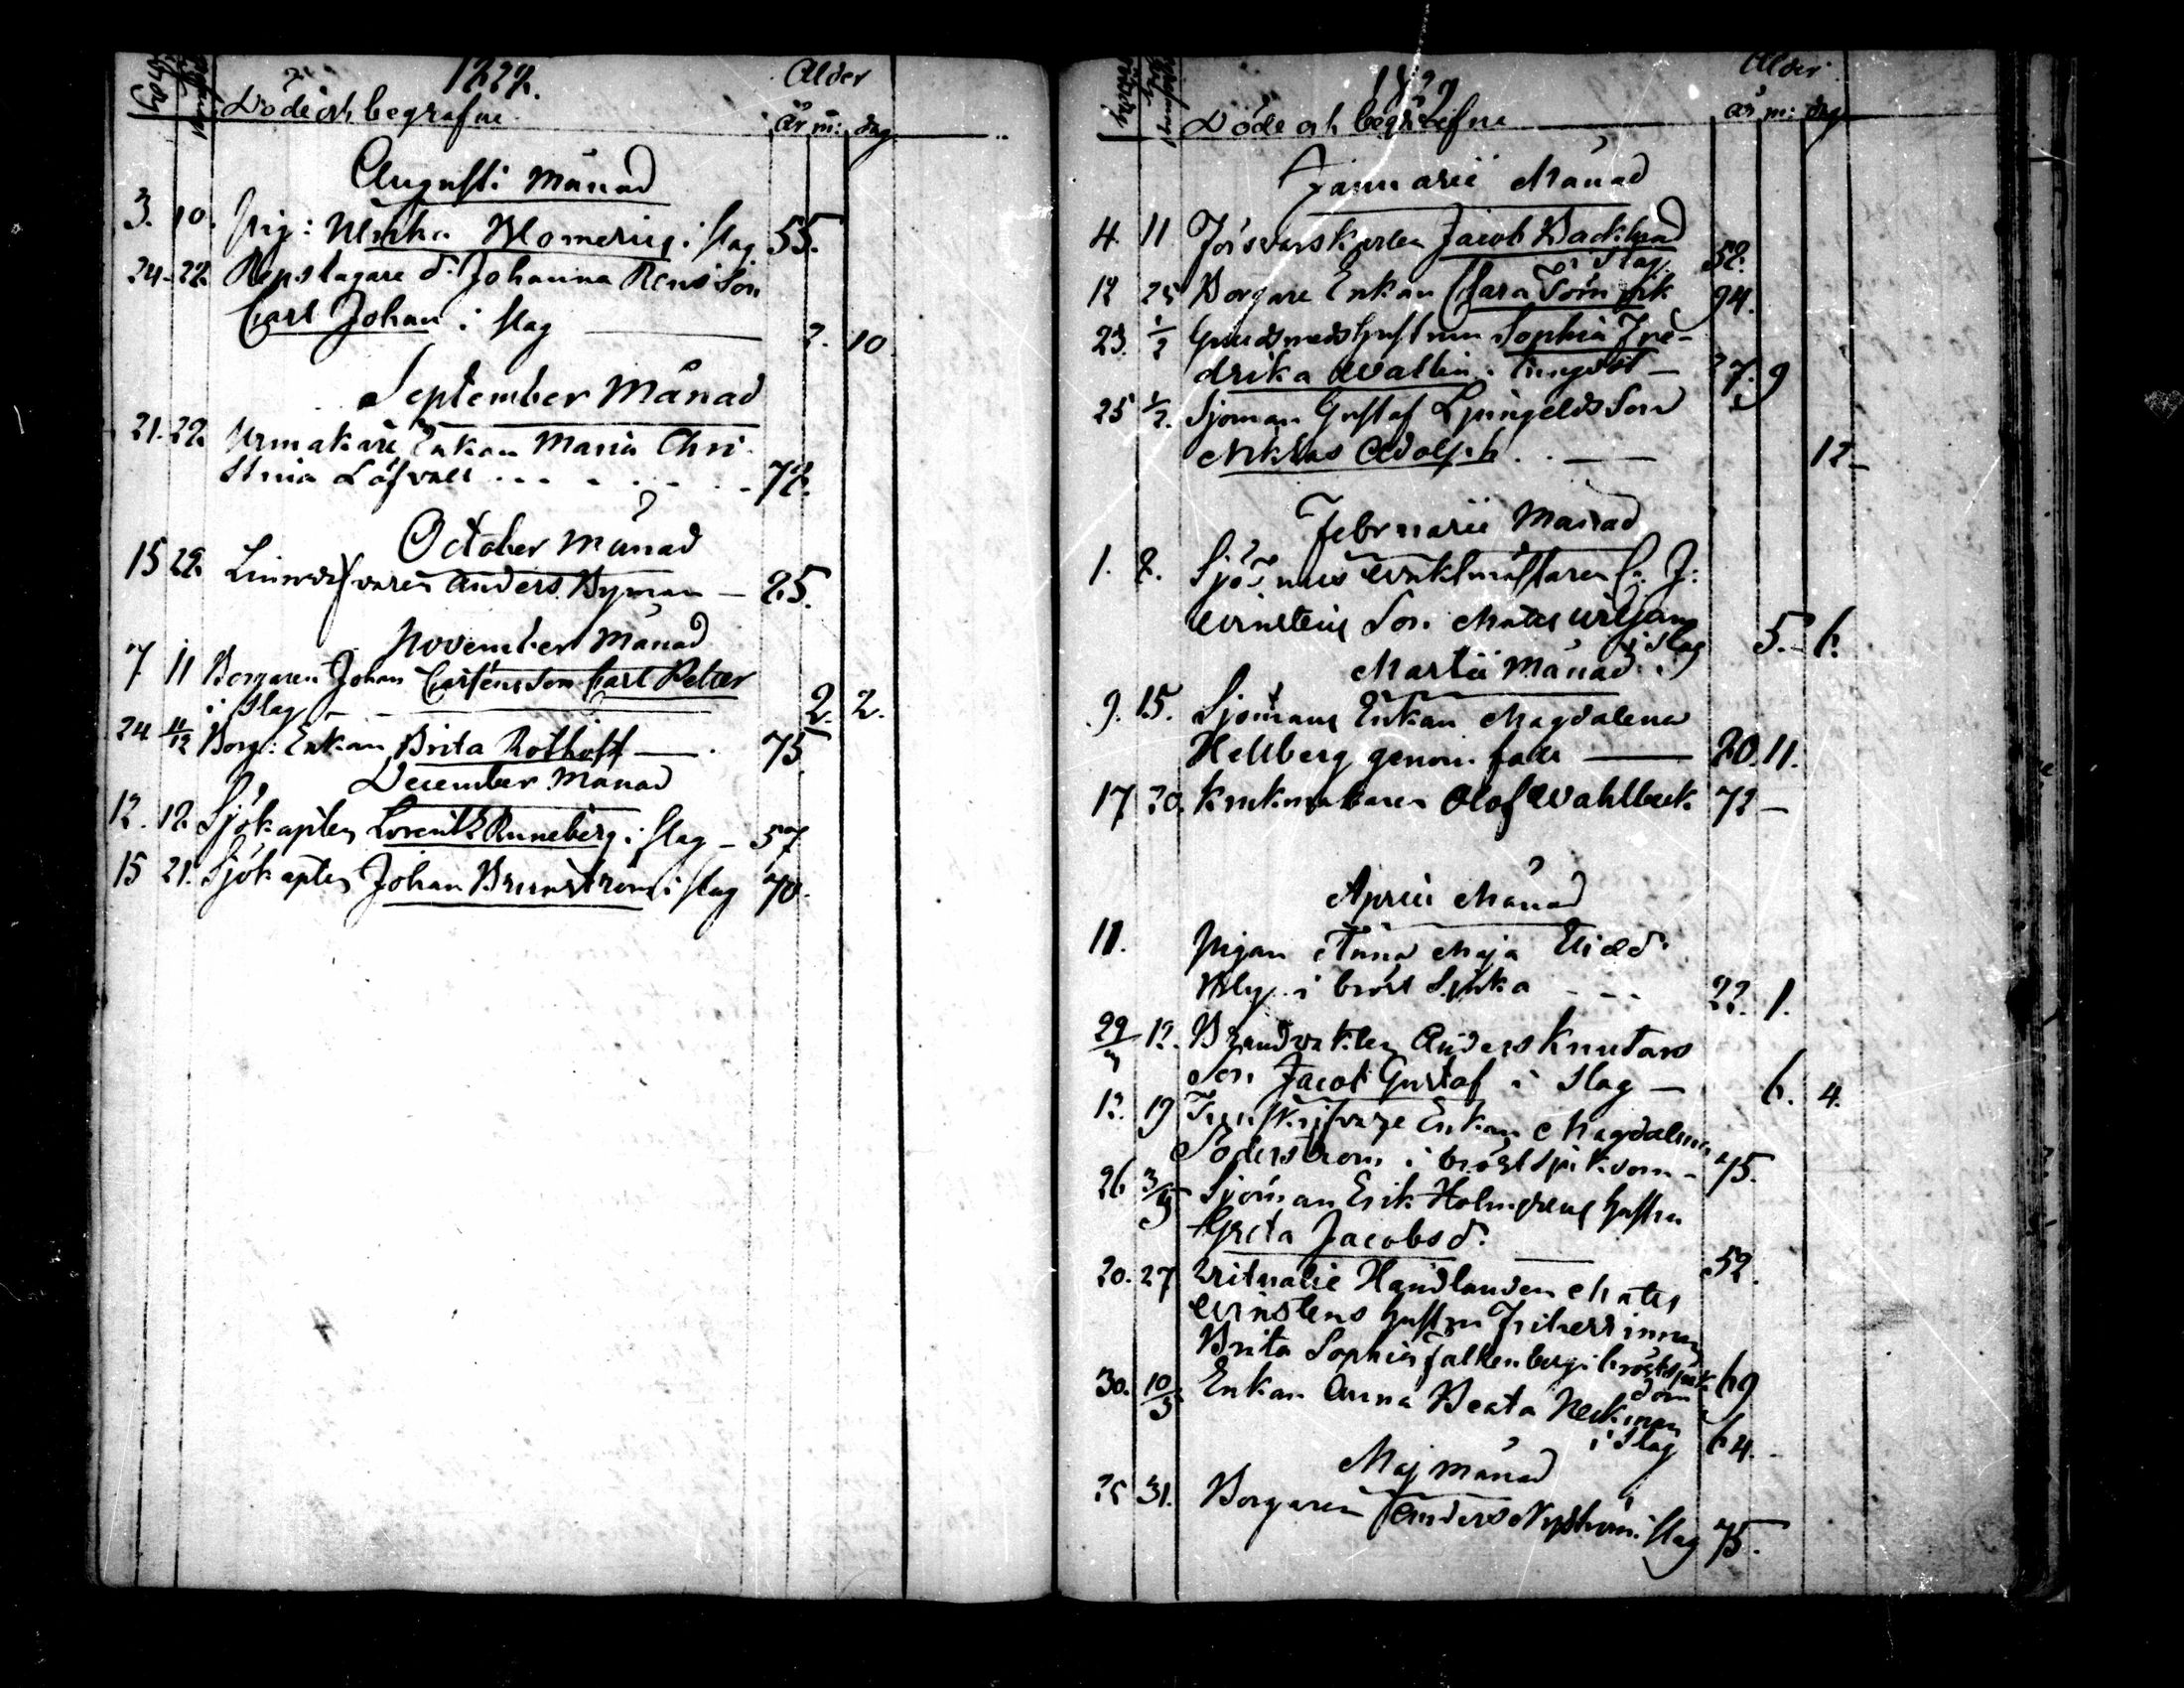 1828. Alder
Döde och begrafne år m: dag
Augusti månad
3. 10. Pig: Ulrika Blomerus i slag. 55.
24. 28 Repslagare d. Johanna Rens Son
Carl Johan i slag 2. 10
September Månad
21. 28. Urmakare Enkan Maria Chri-
stina Löfvall 78.
October månad
15 22. Linnväfvaren Anders Byman 25.
November månad
7 11 Borgaren Johan Carstens Son Carl Petter
i slag 2. 2.
24 11/12 Borg: Enkan Brita Rothoff 75
December månad
12. 18. Sjökapten Lorentz Runeberg i slag 57
15 21. Sjökapten Johan Brunström i slag 70.
1829 Alder
Döde och begrafne år m: dag
Januarii Månad
4. 11 Försvarskarlen Jacob Backlund
i slag. 52.
12 25 Borgare Enkan Sara 94.
23. 1/2 Guldsmeds hustrun Sophia Fre-
drika Wallin i lungsot 27. 9
25 1/2. Sjöman Gustaf Ljungelds Son
Niklas Adolph 12
Februarii Månad
1. 8. Sjötuls Waktmästaren C. J:
Winstens Son Mats Wiljam
i slag 5. 6.
Martii Månad
9. 15. Sjömans Enkan Magdalena
Hellberg genom fall 20. 11.
17 20. Krukmakaren Olof Wahlbeck 72
April Månad
11. Pigan Anna Maja d.
i bröst Sjuka 22. 1.
29/3 12. Brandvakten Anders Knutars
Son Jacob Gustaf i slag 6. 4.
12. 19 Enkan Magdalena
Söderström i bröstsjukdom 75.
26 3/5 Sjöman Erik Holmgrens hustru
Greta Jacobsd. 52.
20. 27 Vitualie Handlanden Mats
Winstens hustru Friherrinnan
Brita Sophia Falkenberg i bröstsjuk-
dom 69
30. 10/5 Enkan Anna Beata Neckman
i slag 64.
Maj månad
25 31. Borgaren Anders Nyström i slag 75.